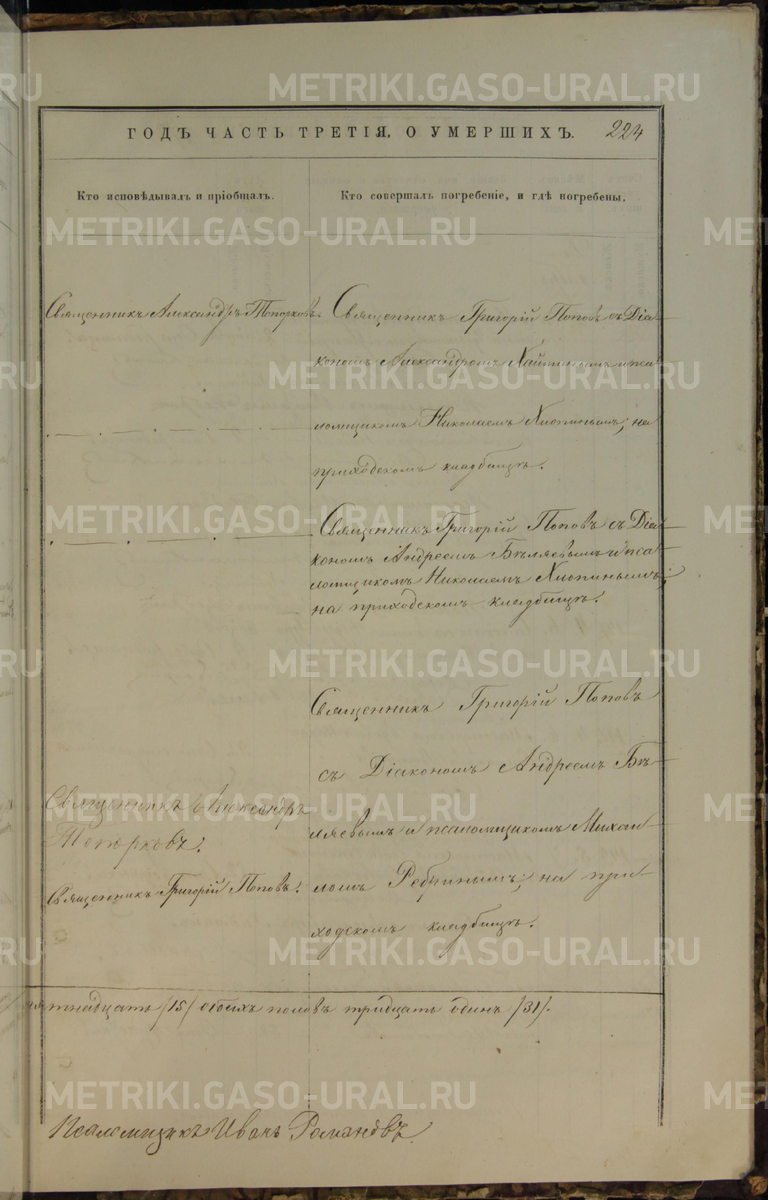 ГОДЪ ЧАСТЬ ТРЕТІЯ, О УМЕРШИХЪ.
224
Кто исповѣдывалъ и пріобщалъ.
Кто совершалъ погребеніе, и гдѣ погребены.
Священникъ Александръ Топорковъ.
Священникъ Григорій Поповъ съ Діа-
кономъ Александромъ и пса-
ломщикомъ Николаемъ Хлопинымъ, на
приходскомъ кладбищѣ.
Священникъ Григорій Поповъ съ Діа-
кономъ Андреемъ Бѣляевымъ и пса-
ломщикомъ Николаемъ Хлопинымъ,
на приходскомъ кладбищѣ.
Священникъ Григорій Поповъ
съ Діакономъ Андреемъ Бѣ-
ляевымъ и псаломщикомъ Михаи-
ломъ на при-
ходскомъ кладбищѣ.
Священникъ Александръ
Топорковъ.
Священникъ Григорій Поповъ.
пятнадцать /15/ обоихъ половъ тридцать одинъ /31/.
Псаломщикъ Иванъ Романовъ.
METRIKI.GASO-URAL.RU